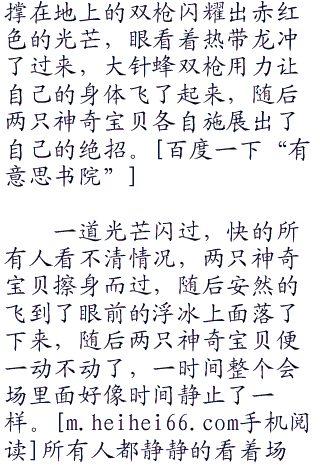 撑在地上的双枪闪耀出赤红
色的光芒，眼看着热带龙冲
了过来，大针蜂双枪用力让
自己的身体飞了起来，随后
两只神奇宝贝各自施展出了
自己的绝招。[百度一下“有
意思书院”]
一道光芒闪过，快的所
有人看不清情况，两只神奇
宝贝擦身而过，随后安然的
飞到了眼前的浮冰上面落了
下来，随后两只神奇宝贝便
一动不动了，一时间整个会
场里面好像时间静止了一
样。[m.heihei66.com手机阅
读]所有人都静静的看着场